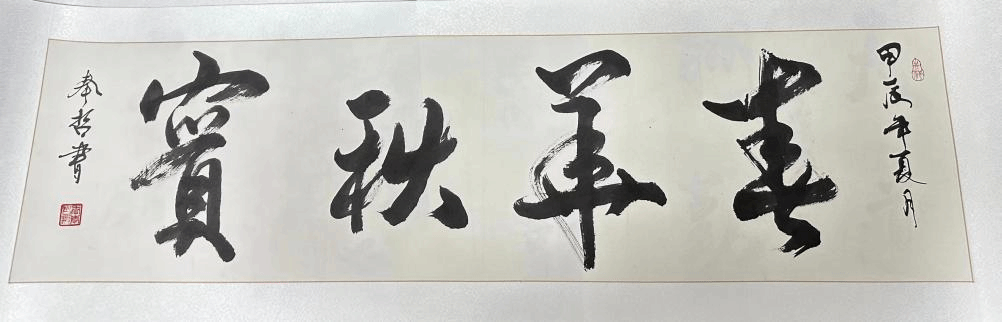 甲辰年夏月
春華秋實
秦哲書